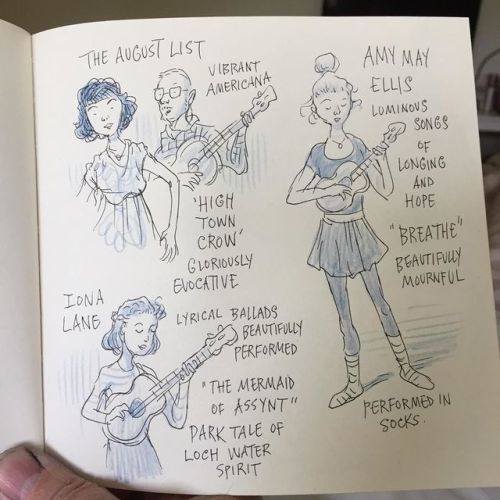 THE AUGUST LIST
VIBRANT
AMERICANA
'HIGH
TOWN
CROW'
GLORIOUSLY
EVOCATIVE
AMY MAY
ELLIS
LUMINOUS
SONGS
OF
LONGING
AND
HOPE
"BREATHE"
BEAUTIFULLY
MOURNFUL
PERFORMED IN
SOCKS.
IONA
LANE
LYRICAL BALLADS
BEAUTIFULLY
PERFORMED
"THE MERMAID
OF ASSYNT"
DARK TALE OF
LOCH WATER
SPIRIT